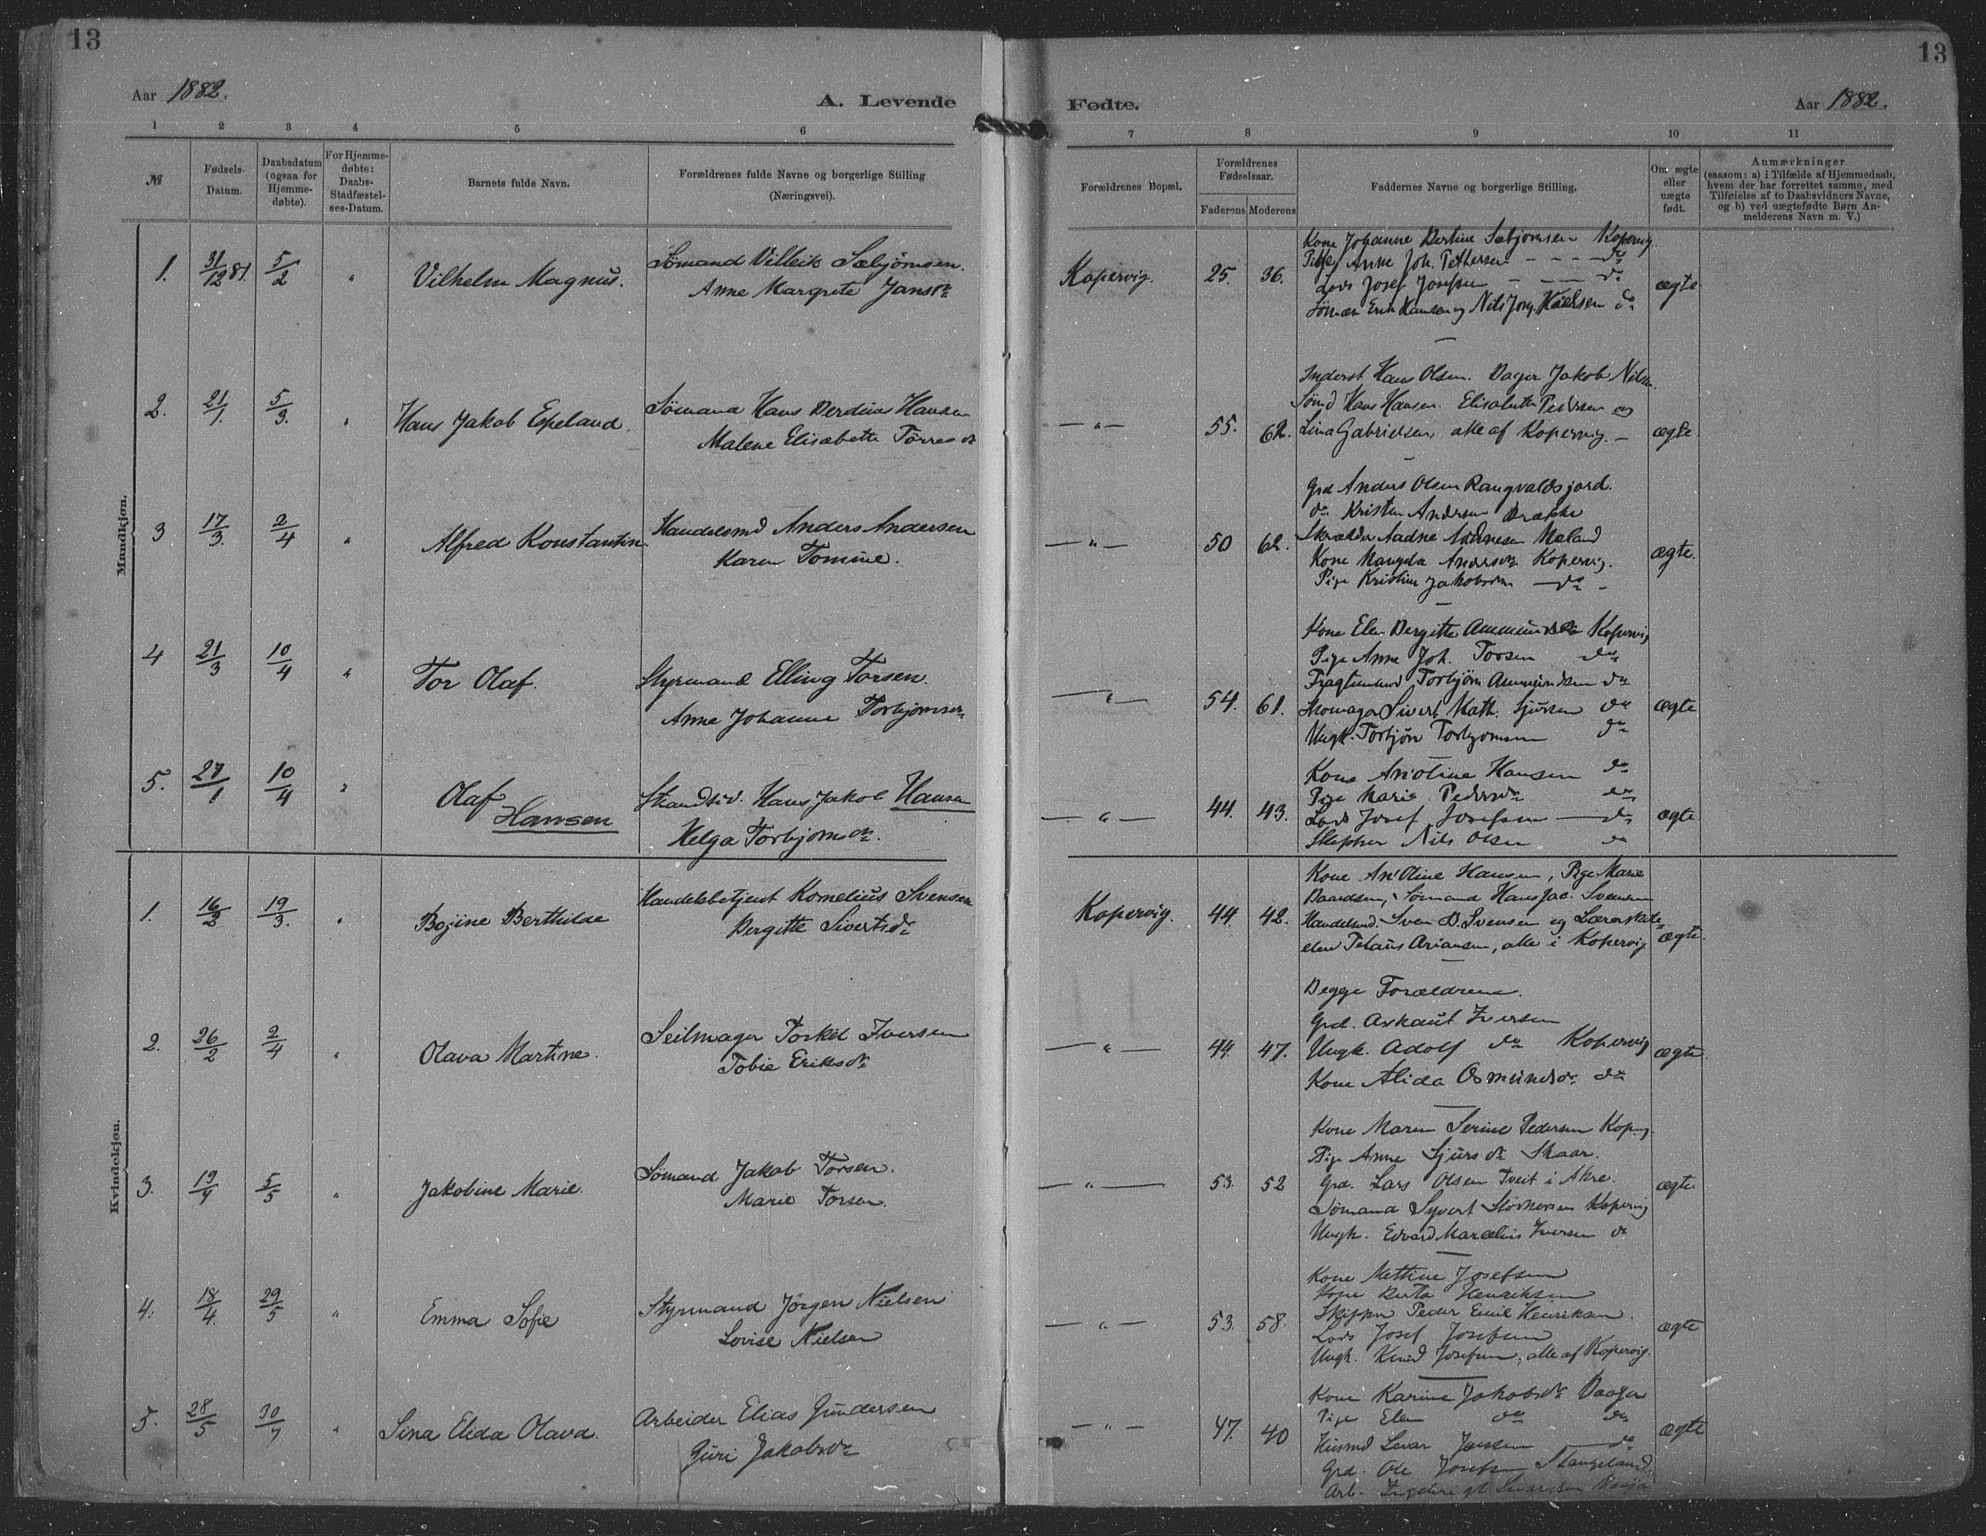 13
13
Aar 1882.
A. Levende
Fødte.
Aar 1882.
1 2 3 4 5 6 7 8 9 10 11
№
Fødsels-
Datum.
Daabsdatum
(ogsaa for
Hjemme-
døbte).
For Hjemme-
døbte:
Daabs-
Stadfæstel-
ses-Datum.
Barnets fulde Navn.
Forældrenes fulde Navne og borgerlige Stilling
(Næringsvei).
Forældrenes Bopæl.
Forældrenes
Fødselsaar.
Faderens Moderens
Faddernes Navne og borgerlige Stilling.
Om ægte
eller
uægte
født.
Anmærkninger
(saasom: a) i Tilfælde af Hjemmedaab,
hvem der har forrettet samme, med
Tilføielse af to Daabsvidners Navne,
og b) ved uægtefødte Børn An-
melderens Navn m. V.)
Mandkjøn.
1. 31/12 81. 5/2 " Vilhelm Magnus.
Sømand Villeik Sæbjørnsen.
Anne Margrete Jansdr
Kopervig. 25. 36.
Kone Johanne Bertine Sæbjørnsen Kopervig.
Pige Anne Joh. Pettersen - - - do
Lods Josef Josefsen - - - do
Sømæn Erik Hansen og Nils Jørg. Nielsen do
ægte
2. 21/1. 5/3. " Hans Jakob Espeland.
Sømand Hans Berdius Hansen
Malene Elisabeth Tørresdr
— " — 55. 62.
Inderst Hans Olsen. Bager Jakob Nilsen
Sømd Hans Hansen. Elisabeth Pedersen og
Lina Gabrielsen, alle af Kopervig. —
ægte.
3 17/3. 2/4 " Alfred Konstantin
Handelsmd Anders Andersen
Karen Tomine.
— " — 50 62.
Grd Anders Olsen Rangvaldsjord.
do Kristen Andersen Brække
Skrædder Aadne Aadnesen Meland
Kone Magda Andersen Kopervig.
Pige Kristine Jakobsen — do —
ægte.
4 21/3 10/4 " Tor Olaf.
Styrmand Elling Torsen.
Anne Johanne Torbjørnsen
— " — 54. 61.
Kone Elen Bergitte Ammundsen Kopervig
Pige Anne Joh. Torsen do
Fragtemand Torbjørn Ammundsen do
Skomager Sivert Math. Sjursen do
Ungk. Torbjørn Torbjørnsen do
ægte
5. 27/1 10/4 " Olaf
Hansen
Strandsid. Hans Jakob Hansen
Helga Torbjørnsdr.
— " — 44. 43.
Kone An'Oline Hansen do
Pige Marie Pedersdr do
Lods Josef Josefsen — do
Skipper Nils Olsen do
ægte
Kvindekjøn.
1. 16/2 19/3. " Bojine Berthilde
Handelsbetjent Kornelius Svensen
Bergitte Sivertsdr
Kopervig. 44. 42.
Kone An'Oline Hansen, Pige Marie
Baardsen, Sømand Hans Jac. Svensen
Handelsmd. Sven B. Svensen og Lærerskole=
elev Tetaus Ariansen, alle i Kopervig
ægte.
2. 26/2 2/4 " Olava Martine.
Seilmager Torkel Iversen
Tobie Eriksdr
— " — 44. 47.
Begge Forældrene.
Grd. Askaut Iversen
Ungk. Adolf do Kopervig
Kone Alida Osmundsdr. do
ægte.
3. 19/4 5/5 " Jakobine Marie.
Sømand Jakob Torsen.
Marie Torsen.
— " — 53. 52
Kone Maren Serine Pedersen Koperg.
Pige Anne Sjursdr Skaar.
Grd. Lars Olsen Tveit i Akre.
Sømand Syvert Størkersen Kopervig
Ungk. Edvard Marcelius Iversen do
ægte
4. 18/4. 29/5 " Emma Sofie
Styrmand Jørgen Nielsen
Lovise Nielsen
— " — 53. 58.
Kone Mettine Josefsen
Kone Berta Henriksen
Skipper Peder Emil Henriksen.
Lods Josef Josefsen
Ungk. Knud Josefsen, alle af Kopervig.
ægte
5. 28/5 30/7 " Sina Elida Olava.
Arbeider Elias Gundersen
Guri Jakobsdr
— " — 47. 40
Kone Karine Jakobsdr Vaage
Pige Elen do do
Husmd Levar Jansen — do
Grd. Ole Josefsen Stangeland
ægte